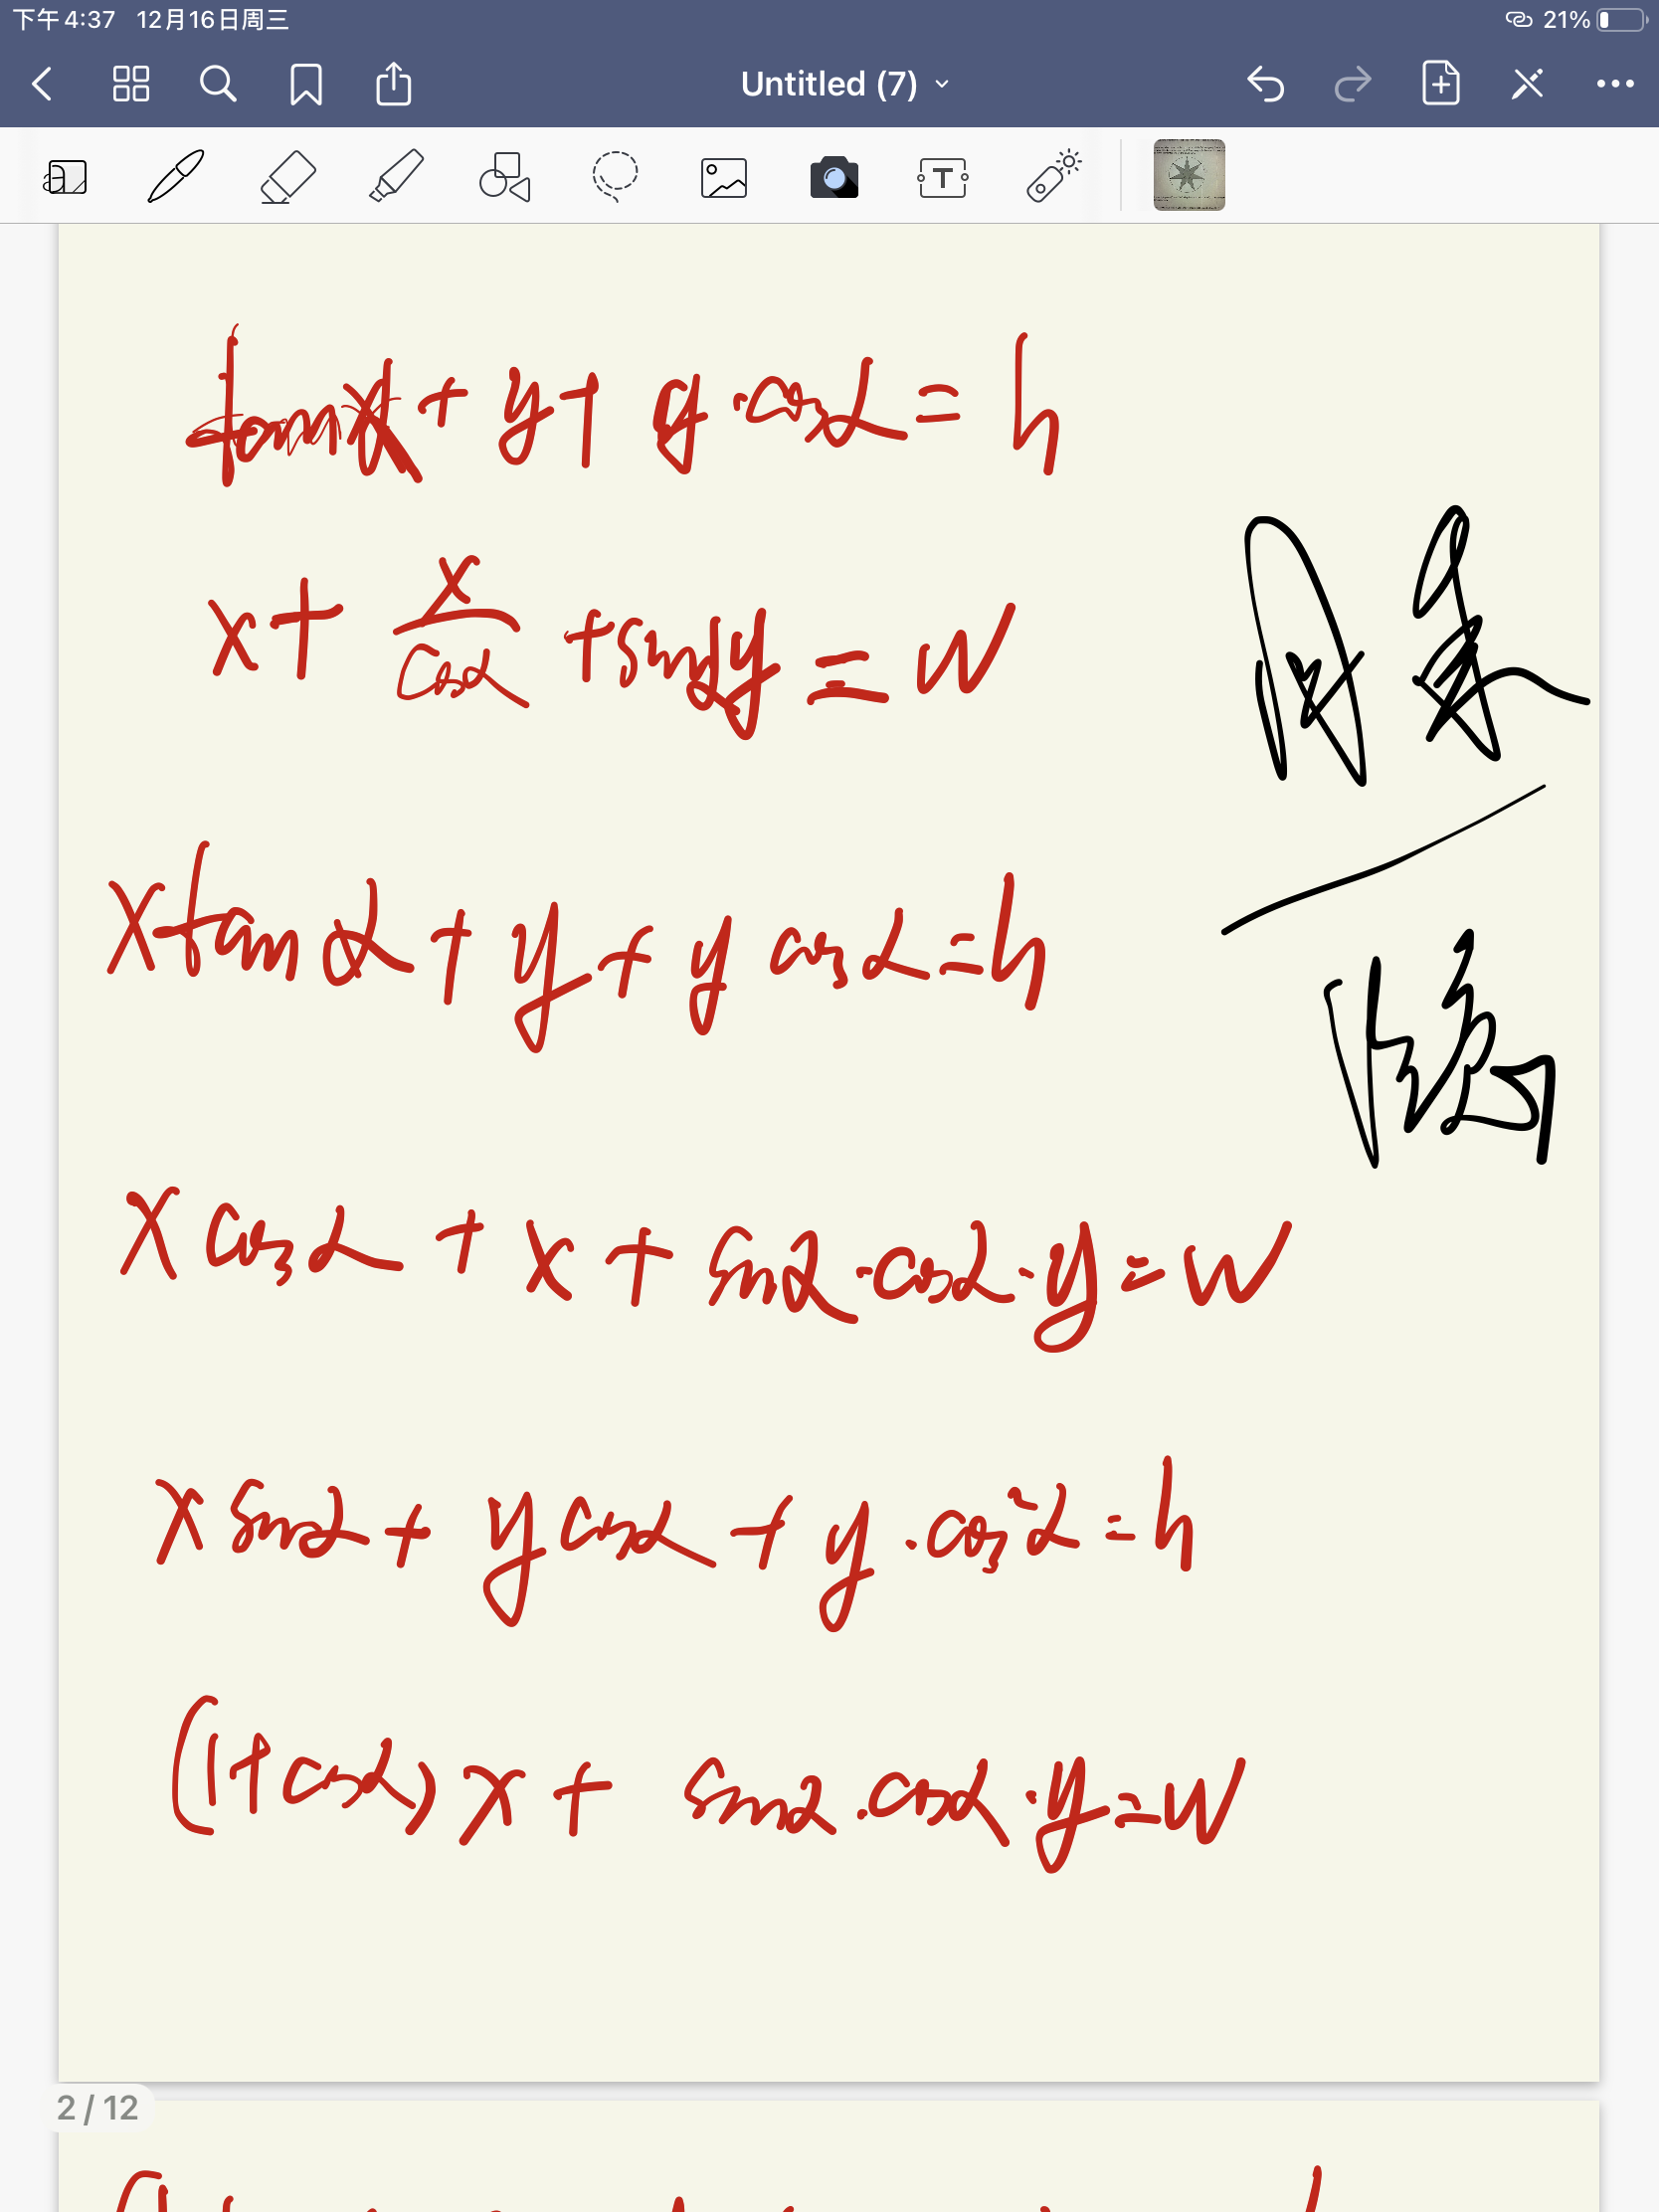 下午4:37 12月16日周三
21%
Untitled (7)
T
+ y + y·cosα = h
x + x/cosα + sinαy = w
x tanα + y + y cosα = h
x cosα + x + sinα·cosα·y = w
x sinα + y cosα + y·cos²α = h
(1+cosα) x + sinα·cosα·y = w
2 / 12